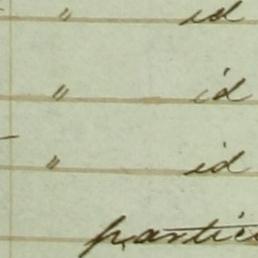 " id
" id
" id
partic